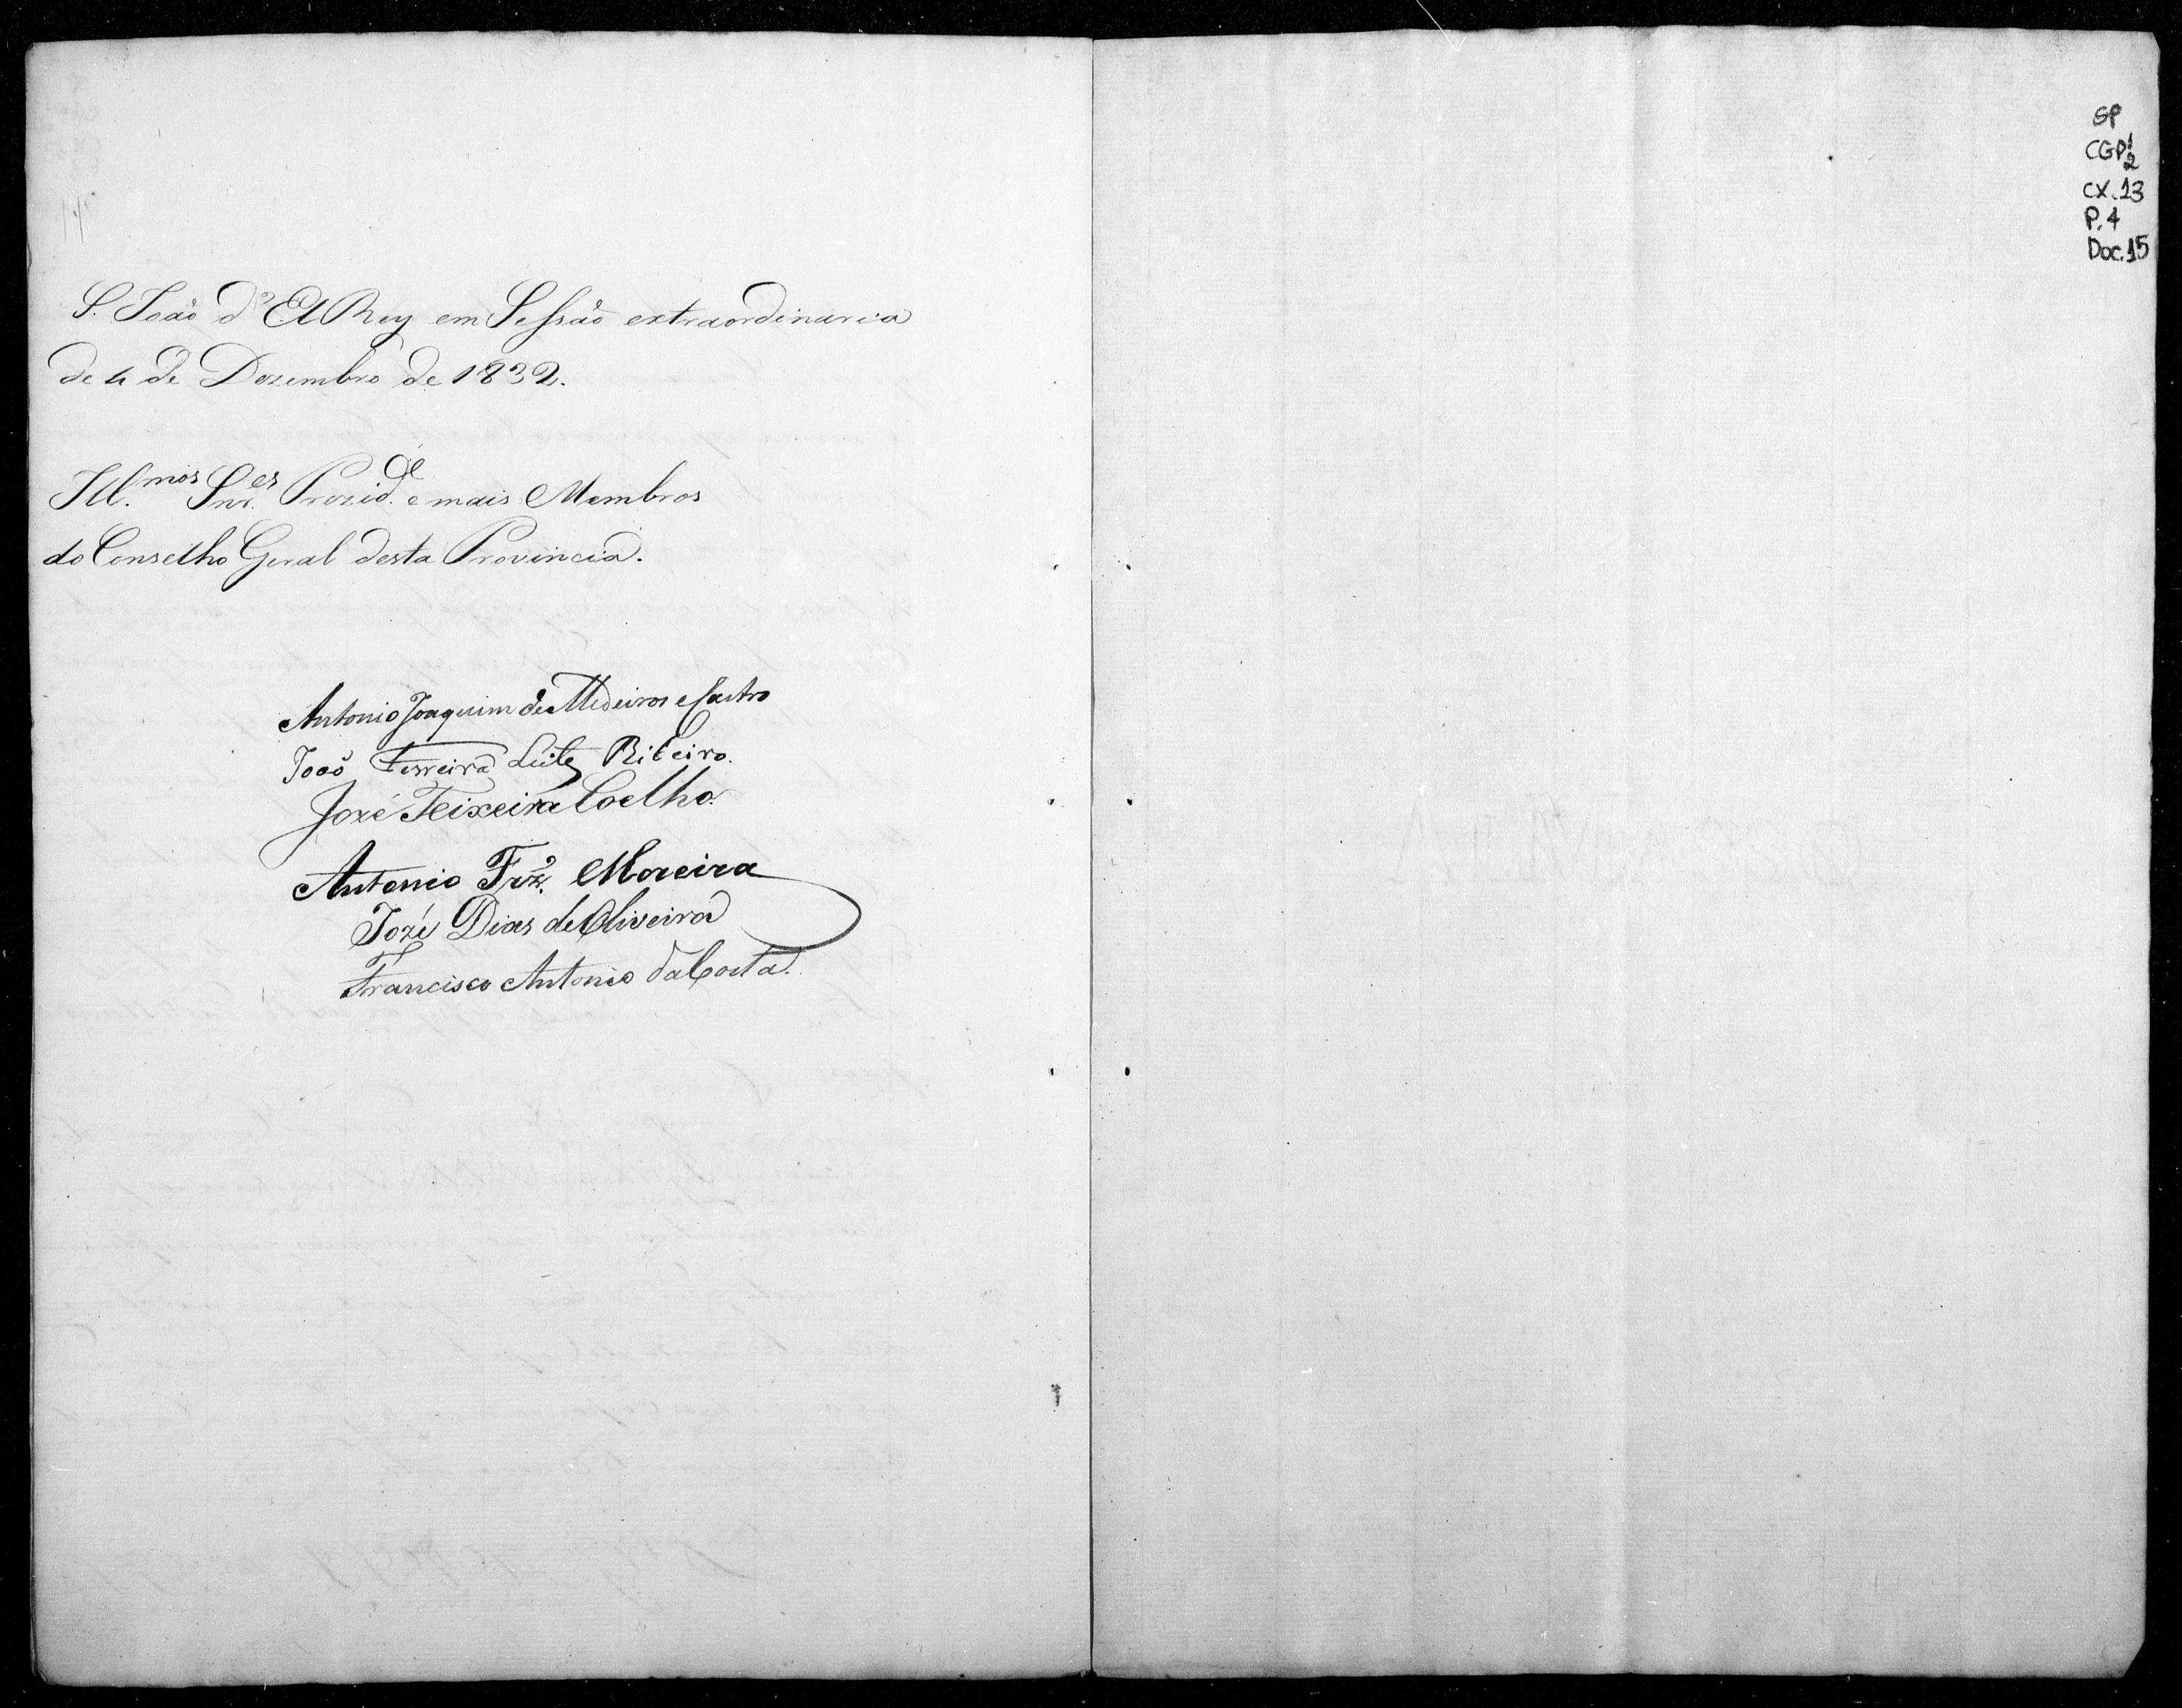 S. João d'El Rey em Sessão extraordinaria
de 4 de Dezembro de 1832.
Ill.mos Snr.es Prezid.e e mais Membros
do Conselho Geral desta Provincia.
Antonio Joaquim de Medeiros e Castro
João Ferreira Leite Ribeiro.
Jozé Teixeira Coelho.
Antonio Frz. Moreira
Jozé Dias de Oliveira
Francisco Antonio da Costa.
SP
CGP1
2
CX.13
P.4
Doc.15